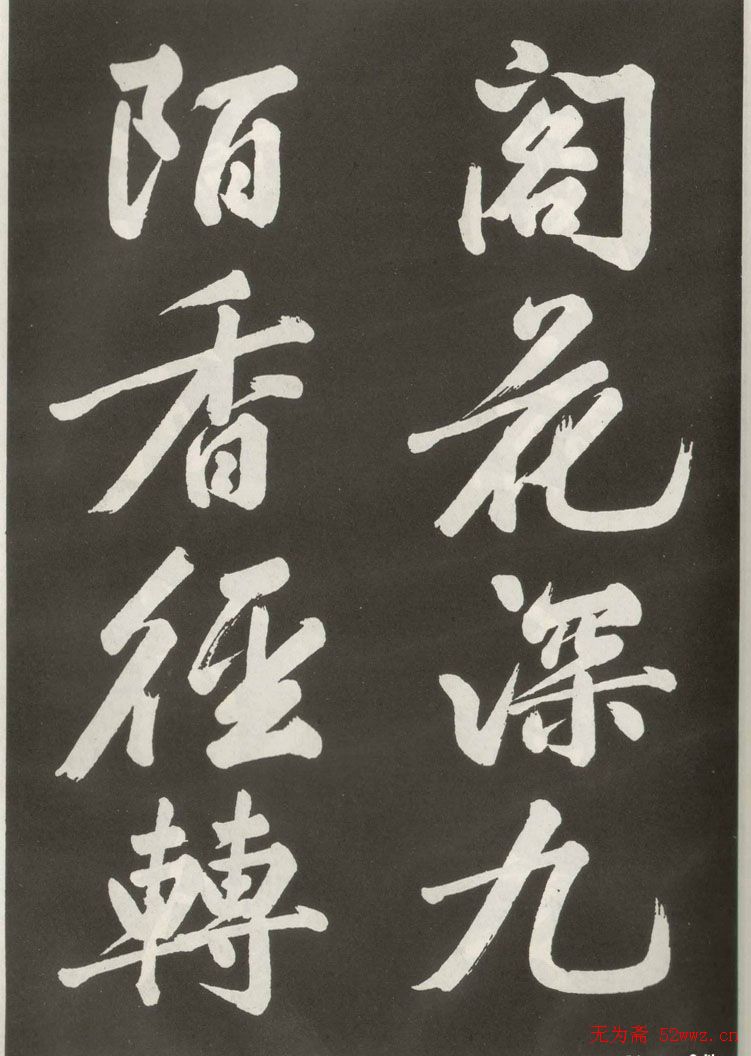 阁花深九
陌香径轉
无为斋 52wwz.cn